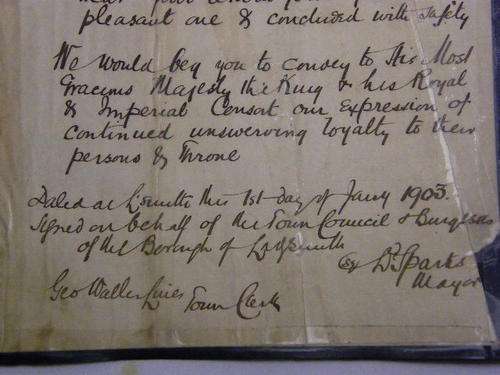 pleasant one & concluded with safety
We would beg you to convey to His Most
Gracious Majesty the King & his Royal
& Imperial Consort our expression of
continued unswerving loyalty to their
persons & Throne
Dated at this 1st day of Jany 1903.
Signed on behalf of the Town Council & Burgesses
of the Borough of Ladysmith
D. Sparks
Mayor
Geo Walter Lines Town Clerk